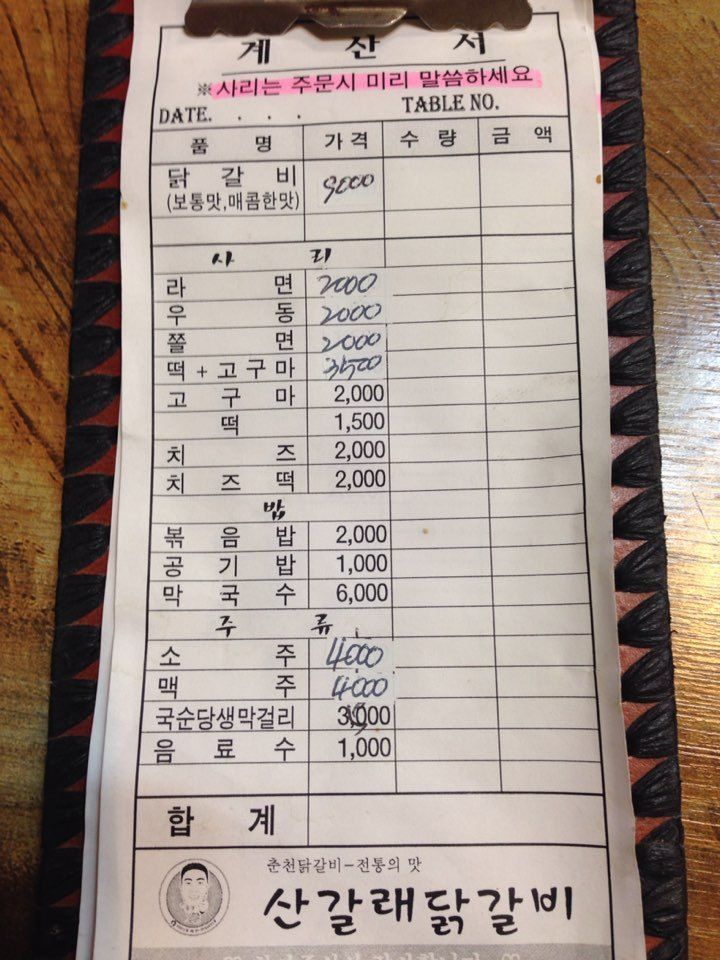 계 산 서
※사리는 주문시 미리 말씀하세요
DATE. . . . TABLE NO.
품 명 가 격 수 량 금 액
닭 갈 비 9000
(보통맛,매콤한맛)
사 리
라 면 2000
우 동 2000
쫄 면 2000
떡 + 고구마 3500
고 구 마 2,000
떡 1,500
치 즈 2,000
치 즈 떡 2,000
밥
볶 음 밥 2,000
공 기 밥 1,000
막 국 수 6,000
주 류
소 주 4000
맥 주 4000
국순당생막걸리
음 료 수 1,000
합 계
춘천닭갈비-전통의 맛
산갈래닭갈비